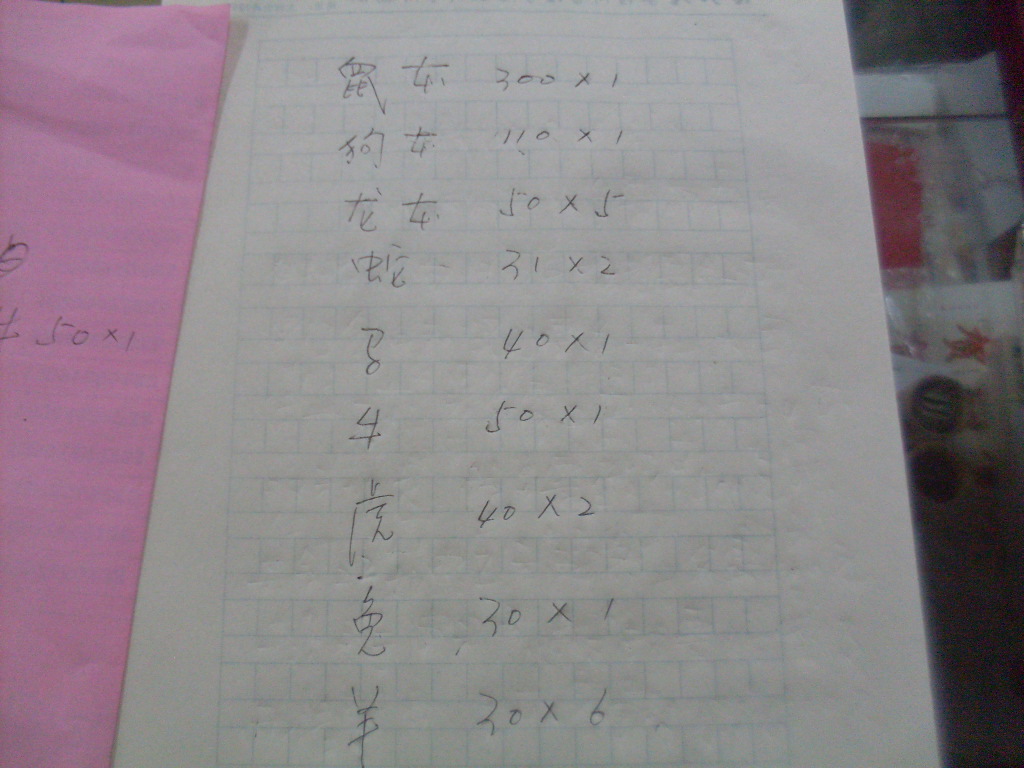 鼠灰 300×1
狗灰 110×1
龙灰 50×5
蛇 31×2
马 40×1
牛 50×1
虎 40×2
兔 30×1
羊 30×6
50×1
贺